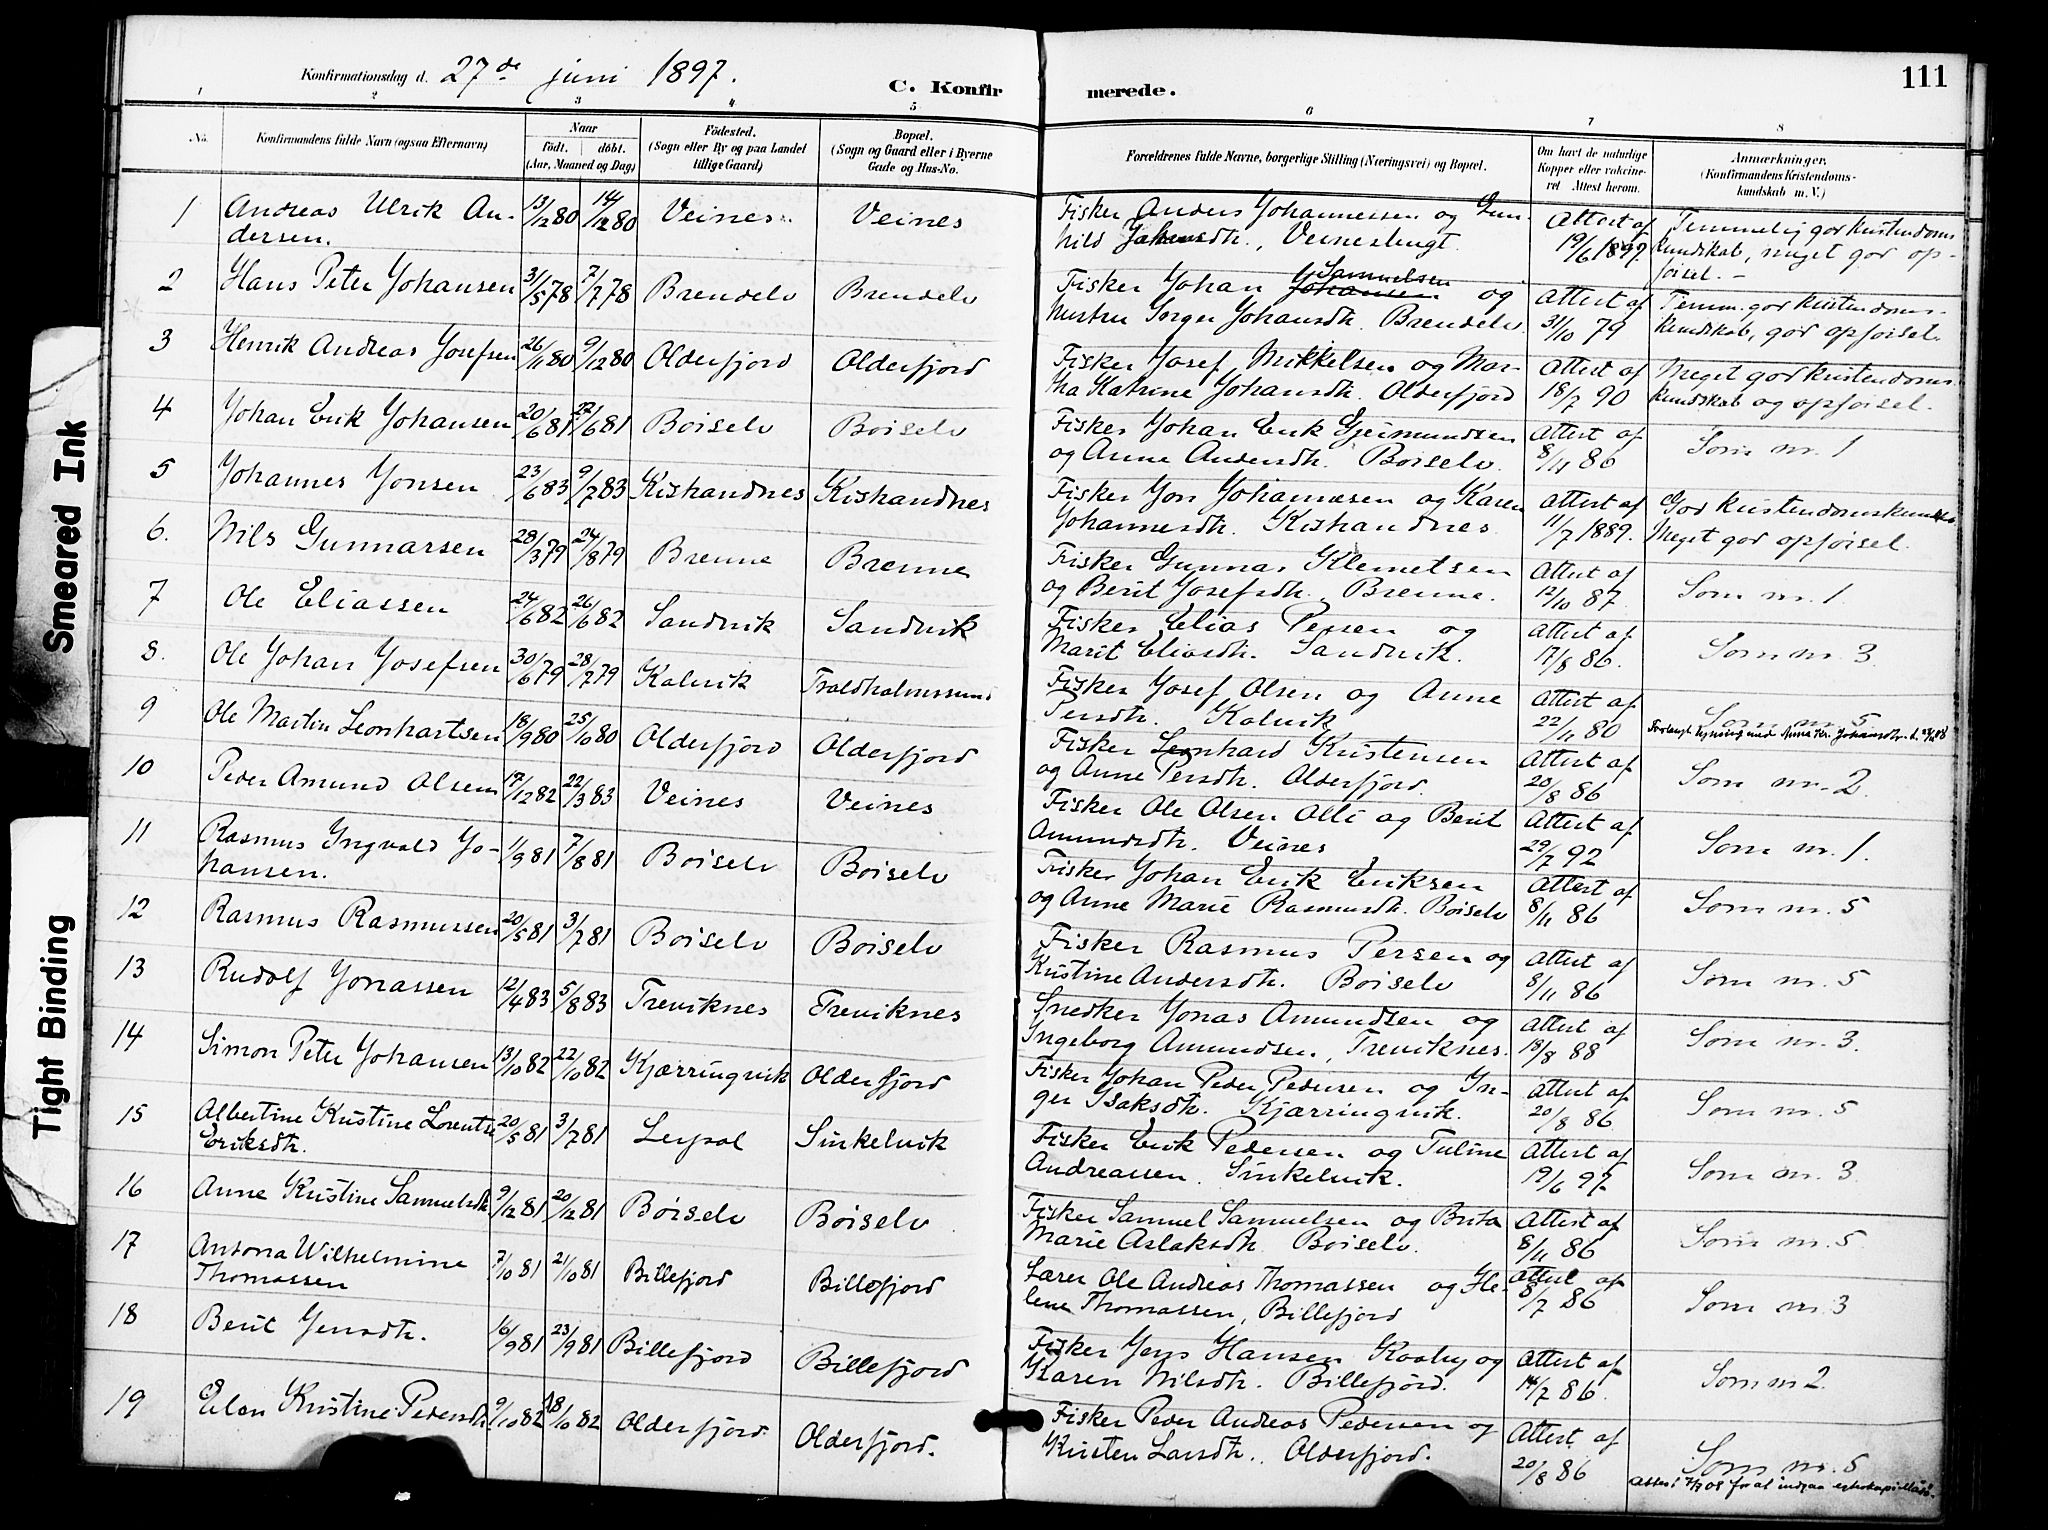 Konfirmationsdag d. 27de juni 1897.
C. Konfirmerede.
111
1 2 3 4 5 6 7 8
No.
Konfirmandens fulde Navn (ogsaa Efternavn)
Naar
födt. döbt.
(Aar, Maaned og Dag)
Födested.
(Sogn eller By og paa Landet
tillige Gaard)
Bopæl.
(Sogn og Gaard eller i Byerne
Gade og Hus-No.
Forældrenes fulde Navne, borgerlige Stilling (Næringsvei) og Bopæl.
Om havt de naturlige
Kopper eller vakcine-
ret Attest herom.
Anmærkninger.
(Konfirmandens Kristendoms-
kundskab m. V.)
1 Andreas Ulrik An- 13/12 80 14/12 80 Veines Veines Fisker Anders Johannessen og Gun- Attest af Temmelig god kristendoms
dersen. hild Johansdtr., Veineslugt. 19/6 1897. kundskab, meget god op-
førsel. -
2 Hans Peter Johansen 31/5 78 7/7 78 Brendelv Brendelv Fisker Johan Johansen Samuelsen og Attest af Temm. god kristendoms-
hustru Johansdtr. Brendelv. 31/10 79 kundskab, god opførsel.
3 Henrik Andreas Josefsen 26/11 80 9/12 80 Olderfjord Olderfjord Fisker Josef Mikkelsen og Mar- Attest af Meget god kristendoms-
tha Katrine Johansdtr. Olderfjord 18/7 90 kundskab og opførsel.
4 Johan Erik Johansen 20/6 81 27/6 81 Børselv Børselv Fisker Johan Erik Geimundsen Attest af Som nr. 1
og Anne Andersdtr. Børselv. 8/11 86
5 Johannes Jonsen 23/6 83 9/7 83 Kistrandnes Kistrandnes Fisker Jon Johannesen og Karen Attest af God kristendomskundsk.
Johannesdtr. Kistrandnes 11/7 1889. Meget god opførsel.
6. Nils Gunnarsen 28/3 79 24/8 79 Brenne Brenne Fisker Gunnar Klemetsen Attest af Som nr. 1.
og Berit Josefsdtr. Brenne. 12/10 87.
7 Ole Eliassen 24/6 82 26/6 82 Sandvik Sandvik Fisker Elias Persen og Attest af Som nr. 3
Marit Eliasdtr. Sandvik. 17/8 86.
8. Ole Johan Josefsen 30/6 79 28/7 79 Kalvik Fisker Josef Olsen og Anne Attest af Som nr. 5
Persdtr. Kalvik 22/11 80
9 Ole Martin Leonhartsen 18/9 80 25/10 80 Olderfjord Olderfjord Fisker Leonhard Kristensen Attest af Som nr. 2
og Anne Persdtr. Olderfjord. 20/8 86
10 Peder Amund Olsen 17/12 82 22/3 83 Veines Veines Fisker Ole Olsen Olli og Berit Attest af Som nr. 1.
Amundsdtr. Veines 29/7 92
11 Rasmus Ingvald Jo- 1/9 81 7/8 81 Børselv Børselv Fisker Johan Erik Eriksen Attest af Som nr. 5
hansen. og Anne Marie Rasmusdtr. Børselv 8/11 86
12 Rasmus Rasmussen 20/5 81 3/7 81 Børselv Børselv Fisker Rasmus Persen og Attest af Som nr. 5
Kristine Andersdtr. Børselv 8/11 86
13 Rudolf Jonassen 12/4 83 5/8 83 Treviknes Treviknes Snedker Jonas Amundsen og Attest af Som nr. 3.
Ingeborg Amundsen, Treviknes. 18/8 88
14 Simon Peter Johansen 13/10 82 22/10 82 Kjærringvik Olderfjord Fisker Johan Peder Pedersen og In- Attest af Som nr. 5
ger Isaksdtr. Kjærringvik. 20/8 86
15 Albertine Kristine Lorentse 20/5 81 3/7 81 Leypol Sinkelvik Fisker Erik Pedersen og Tuline Attest af Som nr. 3
Eriksdtr. Andreassen. Sinkelvik. 19/6 97.
16 Anne Kristine Samuelsdtr 9/12 81 20/12 81 Børselv Børselv Fisker Samuel Samuelsen og Brita Attest af Som nr. 5.
Marie Aslaksdtr. Børselv. 8/11 86
17 Antona Wilhelmine 7/10 81 21/10 81 Billefjord Billefjord Lærer Ole Andreas Thomassen og He- Attest af Som nr. 3
Thomassen lene Thomassen, Billefjord 8/7 86
18 Berit Jensdtr. 16/9 81 23/9 81 Billefjord Billefjord Fisker Jens Hansen Kaaby og Attest af Som nr 2.
Karen Nilsdtr. Billefjord. 14/7 86.
19 Elen Kristine Pedersdtr 9/10 82 18/10 82 Olderfjord. Olderfjord. Fisker Peder Andreas Pedersen og Attest af Som nr. 5
Kirsten Larsdtr. Olderfjord. 20/8 86
Smeared Ink
Tight Binding